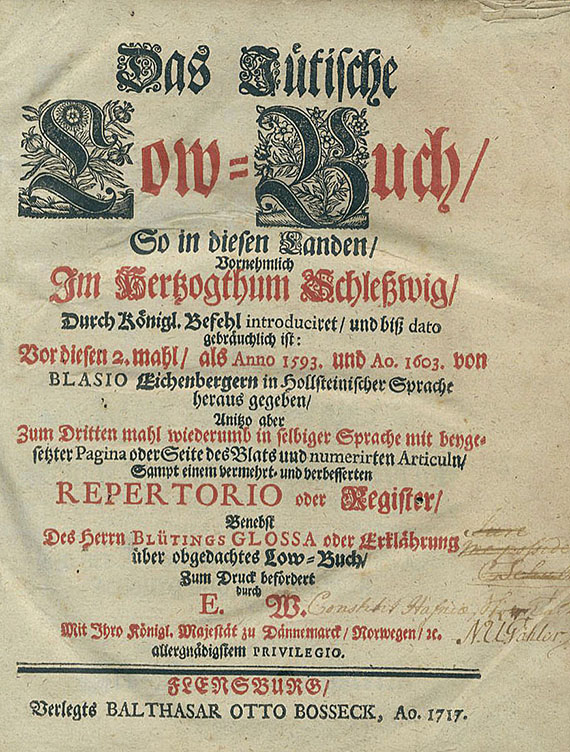 Das Jütische
Low-Buch/
So in diesen Landen/
Vornehmlich
Im Hertzogthum Schleßwig/
Durch Königl. Befehl introduciret/ und biß dato
gebräuchlich ist:
Vor diesen 2. mahl/ als Anno 1593. und Ao. 1603. von
BLASIO Eichenbergern in Hollsteinischer Sprache
heraus gegeben/
Anitzo aber
Zum Dritten mahl wiederumb in selbiger Sprache mit beyge-
setzter Pagina oder Seite des Blats und numerirten Articuln/
Sampt einem vermehrt- und verbesserten
REPERTORIO oder Register/
Benebst
Des Herrn BLÜTINGS GLOSSA oder Erklährung
über obgedachtes Low-Buch/
Zum Druck befördert
durch
E. W.
Constitit Hafniæ
Mit Ihro Königl. Majestät zu Dännemarck/ Norwegen/ ꝛc.
allergnädigstem PRIVILEGIO.
FLENSBURG/
Verlegts BALTHASAR OTTO BOSSECK, Ao. 1717.